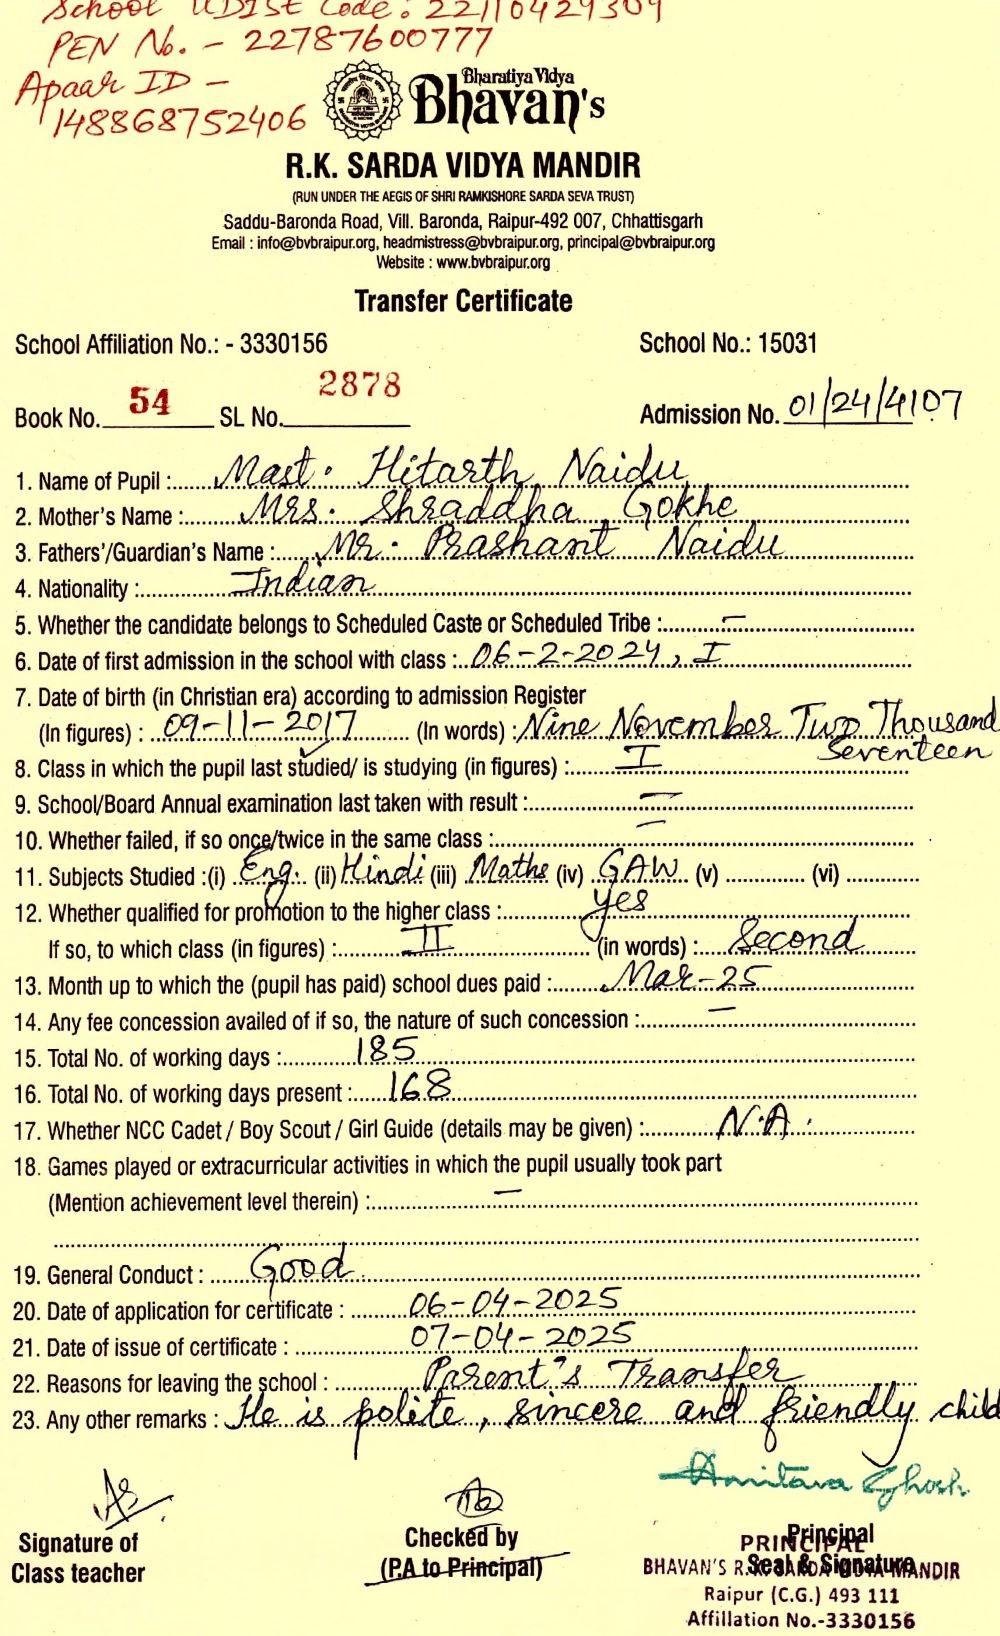 School UDISE Code: 22110429309
PEN No. - 22787600777
Apaar ID -
148868752406
Bharatiya Vidya
Bhavan's
R.K. SARDA VIDYA MANDIR
(RUN UNDER THE AEGIS OF SHRI RAMKISHORE SARDA SEVA TRUST)
Saddu-Baronda Road, Vill. Baronda, Raipur-492 007, Chhattisgarh
Email : info@bvbraipur.org, headmistress@bvbraipur.org, principal@bvbraipur.org
Website : www.bvbraipur.org
Transfer Certificate
School Affiliation No.: - 3330156 School No.: 15031
Book No. 54 SL No. 2878 Admission No. 01/24/4107
1. Name of Pupil : Mast. Hitarth Naidu
2. Mother's Name : Mrs. Shraddha Gokhe
3. Fathers'/Guardian's Name : Mr. Prashant Naidu
4. Nationality : Indian
5. Whether the candidate belongs to Scheduled Caste or Scheduled Tribe : –
6. Date of first admission in the school with class : 06-2-2024, I
7. Date of birth (in Christian era) according to admission Register
(In figures) : 09-11-2017 (In words) : Nine November Two Thousand
Seventeen
8. Class in which the pupil last studied/ is studying (in figures) : I
9. School/Board Annual examination last taken with result : –
10. Whether failed, if so once/twice in the same class : –
11. Subjects Studied :(i) Eng. (ii) Hindi (iii) Maths (iv) GAW (v) (vi)
12. Whether qualified for promotion to the higher class : yes
If so, to which class (in figures) : II (in words) : Second
13. Month up to which the (pupil has paid) school dues paid : Mar-25
14. Any fee concession availed of if so, the nature of such concession : –
15. Total No. of working days : 185
16. Total No. of working days present : 168
17. Whether NCC Cadet / Boy Scout / Girl Guide (details may be given) : N.A.
18. Games played or extracurricular activities in which the pupil usually took part
(Mention achievement level therein) : –
19. General Conduct : Good
20. Date of application for certificate : 06-04-2025
21. Date of issue of certificate : 07-04-2025
22. Reasons for leaving the school : Parent's Transfer
23. Any other remarks : He is polite, sincere and friendly child
Amitava Ghosh
Signature of Checked by Principal
Class teacher (P.A to Principal) Seal & Signature
PRINCIPAL
BHAVAN'S R.K. SARDA VIDYA MANDIR
Raipur (C.G.) 493 111
Affillation No.-3330156